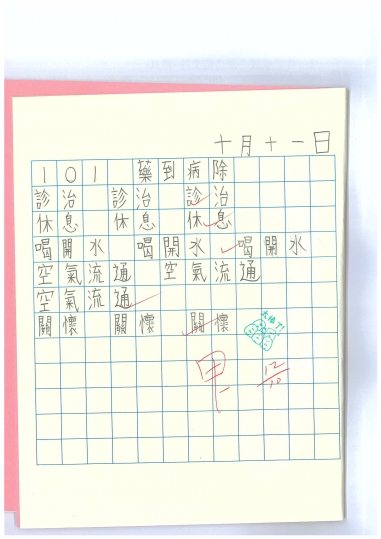 十月十一日
101 藥到病除
診治 診治 診治
休息 休息 休息
喝開水 喝開水 喝開水
空氣流通 空氣流通
空氣流通
關懷 關懷 關懷
太棒了!
甲
12/10